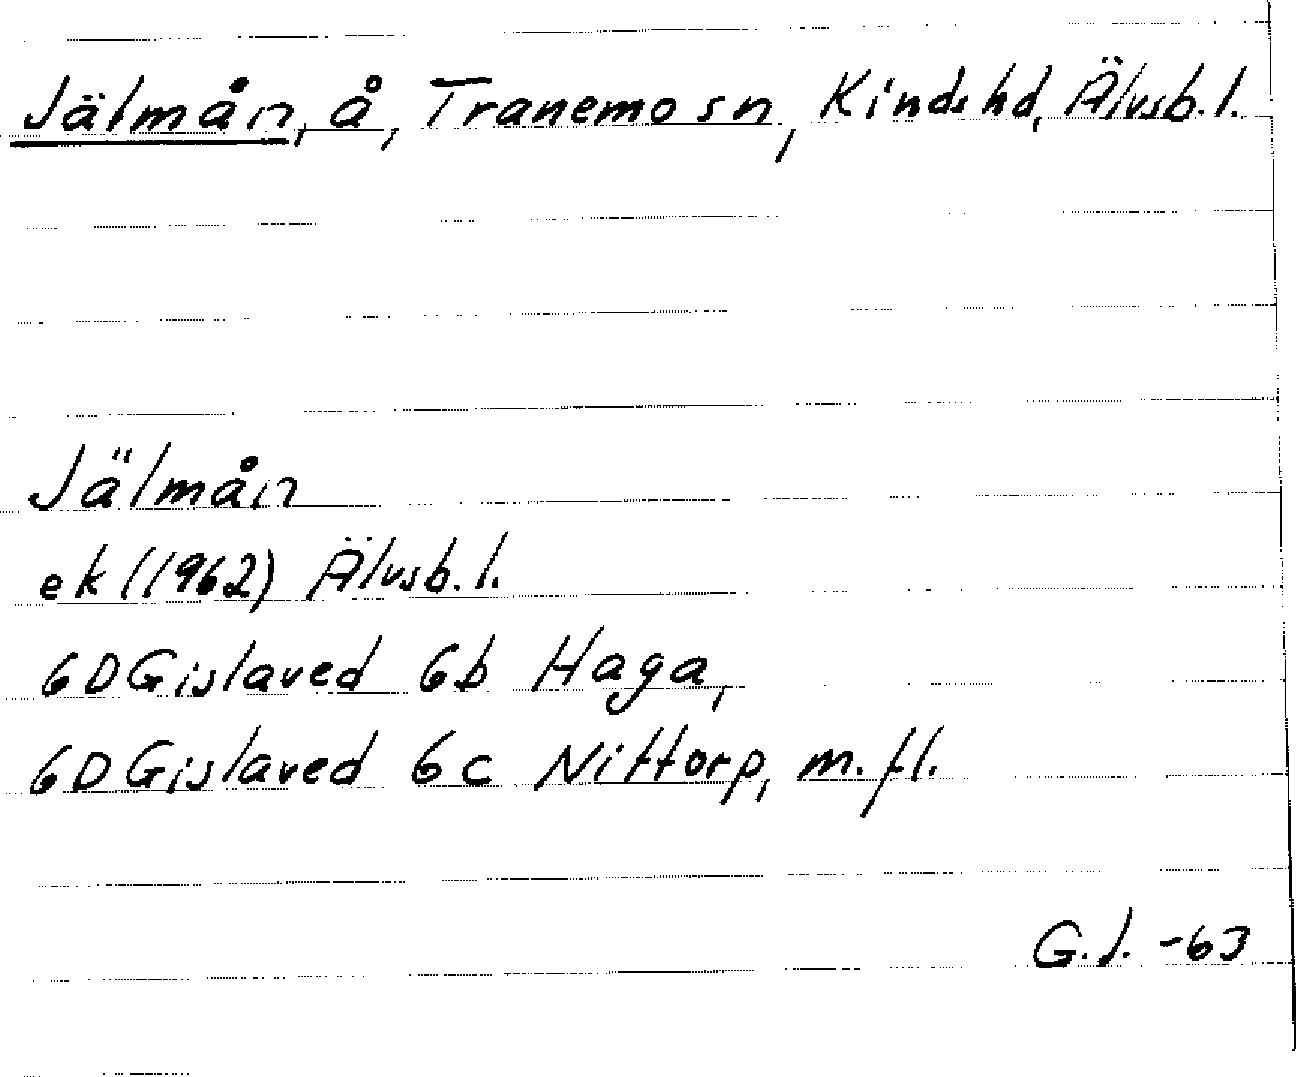 Jälmån, å, Tranemo sn, Kinds hd, Älvsb. l.
Jälmån
ek (1962) Älvsb. l.
6D Gislaved 6b Haga,
6D Gislaved 6c Nittorp, m. fl.
G.J. -63